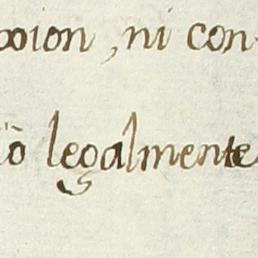 oxion, ni con-
iõ legalmente